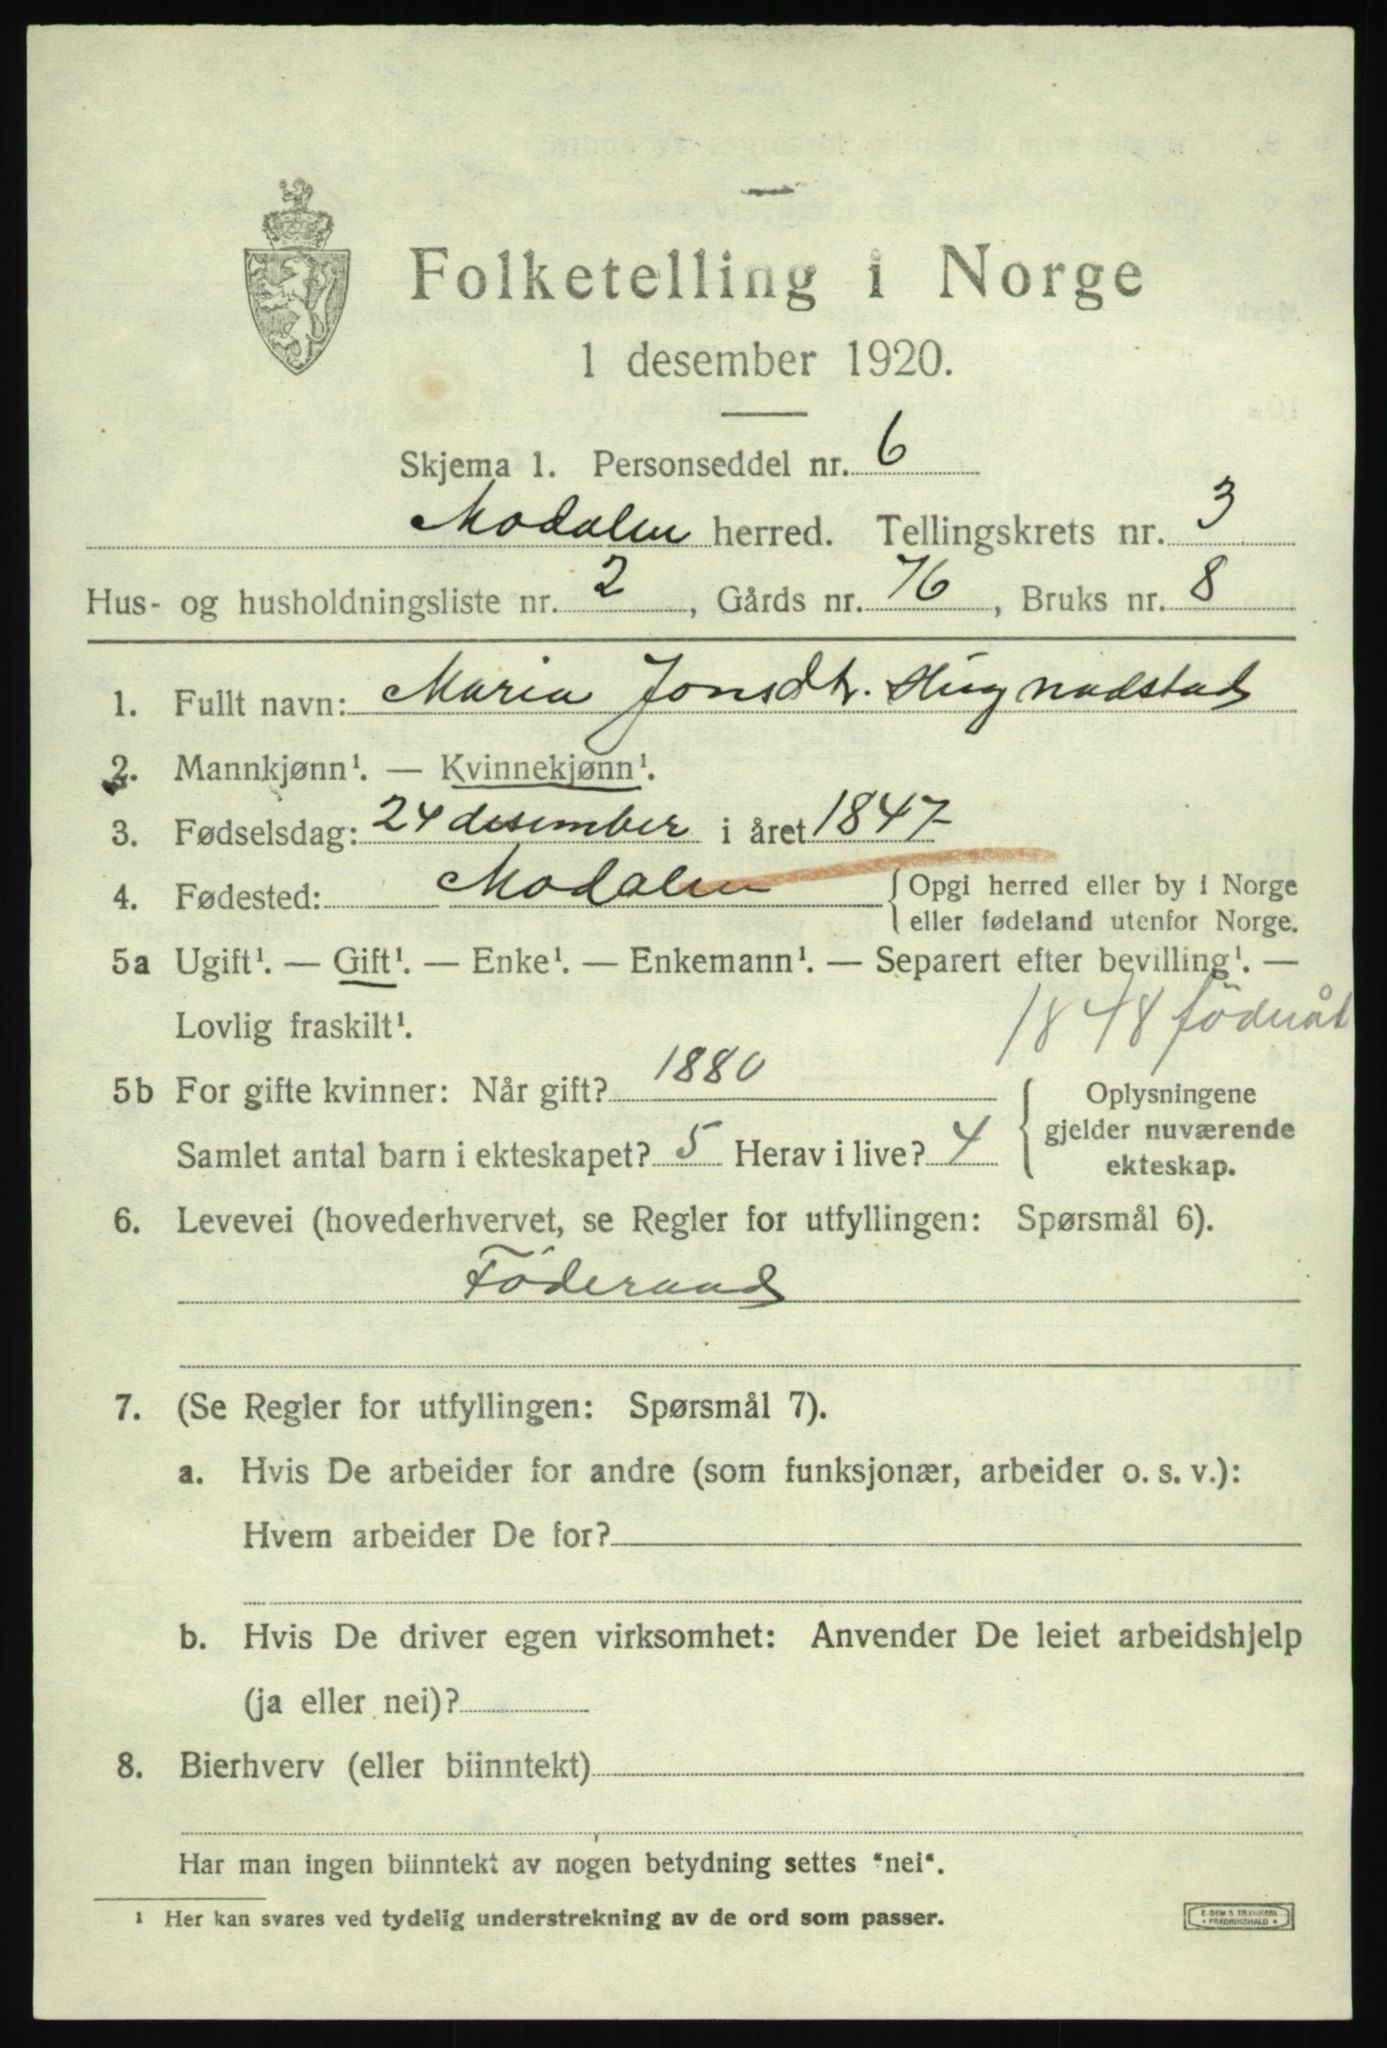 Folketelling i Norge
1 desember 1920.
Skjema 1. Personseddel nr. 6
Modalen herred. Tellingskrets nr. 3
Hus- og husholdningsliste nr. 2, Gårds nr. 76, Bruks nr. 8
1. Fullt navn: Maria Jonsdtr.
2. Mannkjønn¹. — Kvinnekjønn¹.
3. Fødselsdag: 24 desember i året 1847
4. Fødested: Modalen {Opgi herred eller by i Norge
eller fødeland utenfor Norge.
5a Ugift¹. — Gift¹. — Enke¹. — Enkemann¹. — Separert efter bevilling¹. —
Lovlig fraskilt¹.
1848
5b For gifte kvinner: Når gift? 1880
Samlet antal barn i ekteskapet? 5 Herav i live? 4
{Oplysningene
gjelder nuværende
ekteskap.
6. Levevei (hovederhvervet, se Regler for utfyllingen: Spørsmål 6).
Föderaad
7. (Se Regler for utfyllingen: Spørsmål 7).
a. Hvis De arbeider for andre (som funksjonær, arbeider o. s. v.):
Hvem arbeider De for?
b. Hvis De driver egen virksomhet: Anvender De leiet arbeidshjelp
(ja eller nei)?
8. Bierhverv (eller biinntekt)
Har man ingen biinntekt av nogen betydning settes "nei".
¹ Her kan svares ved tydelig understrekning av de ord som passer.
E. SEM'S TRYKKERI
• FREDRIKSHALD •